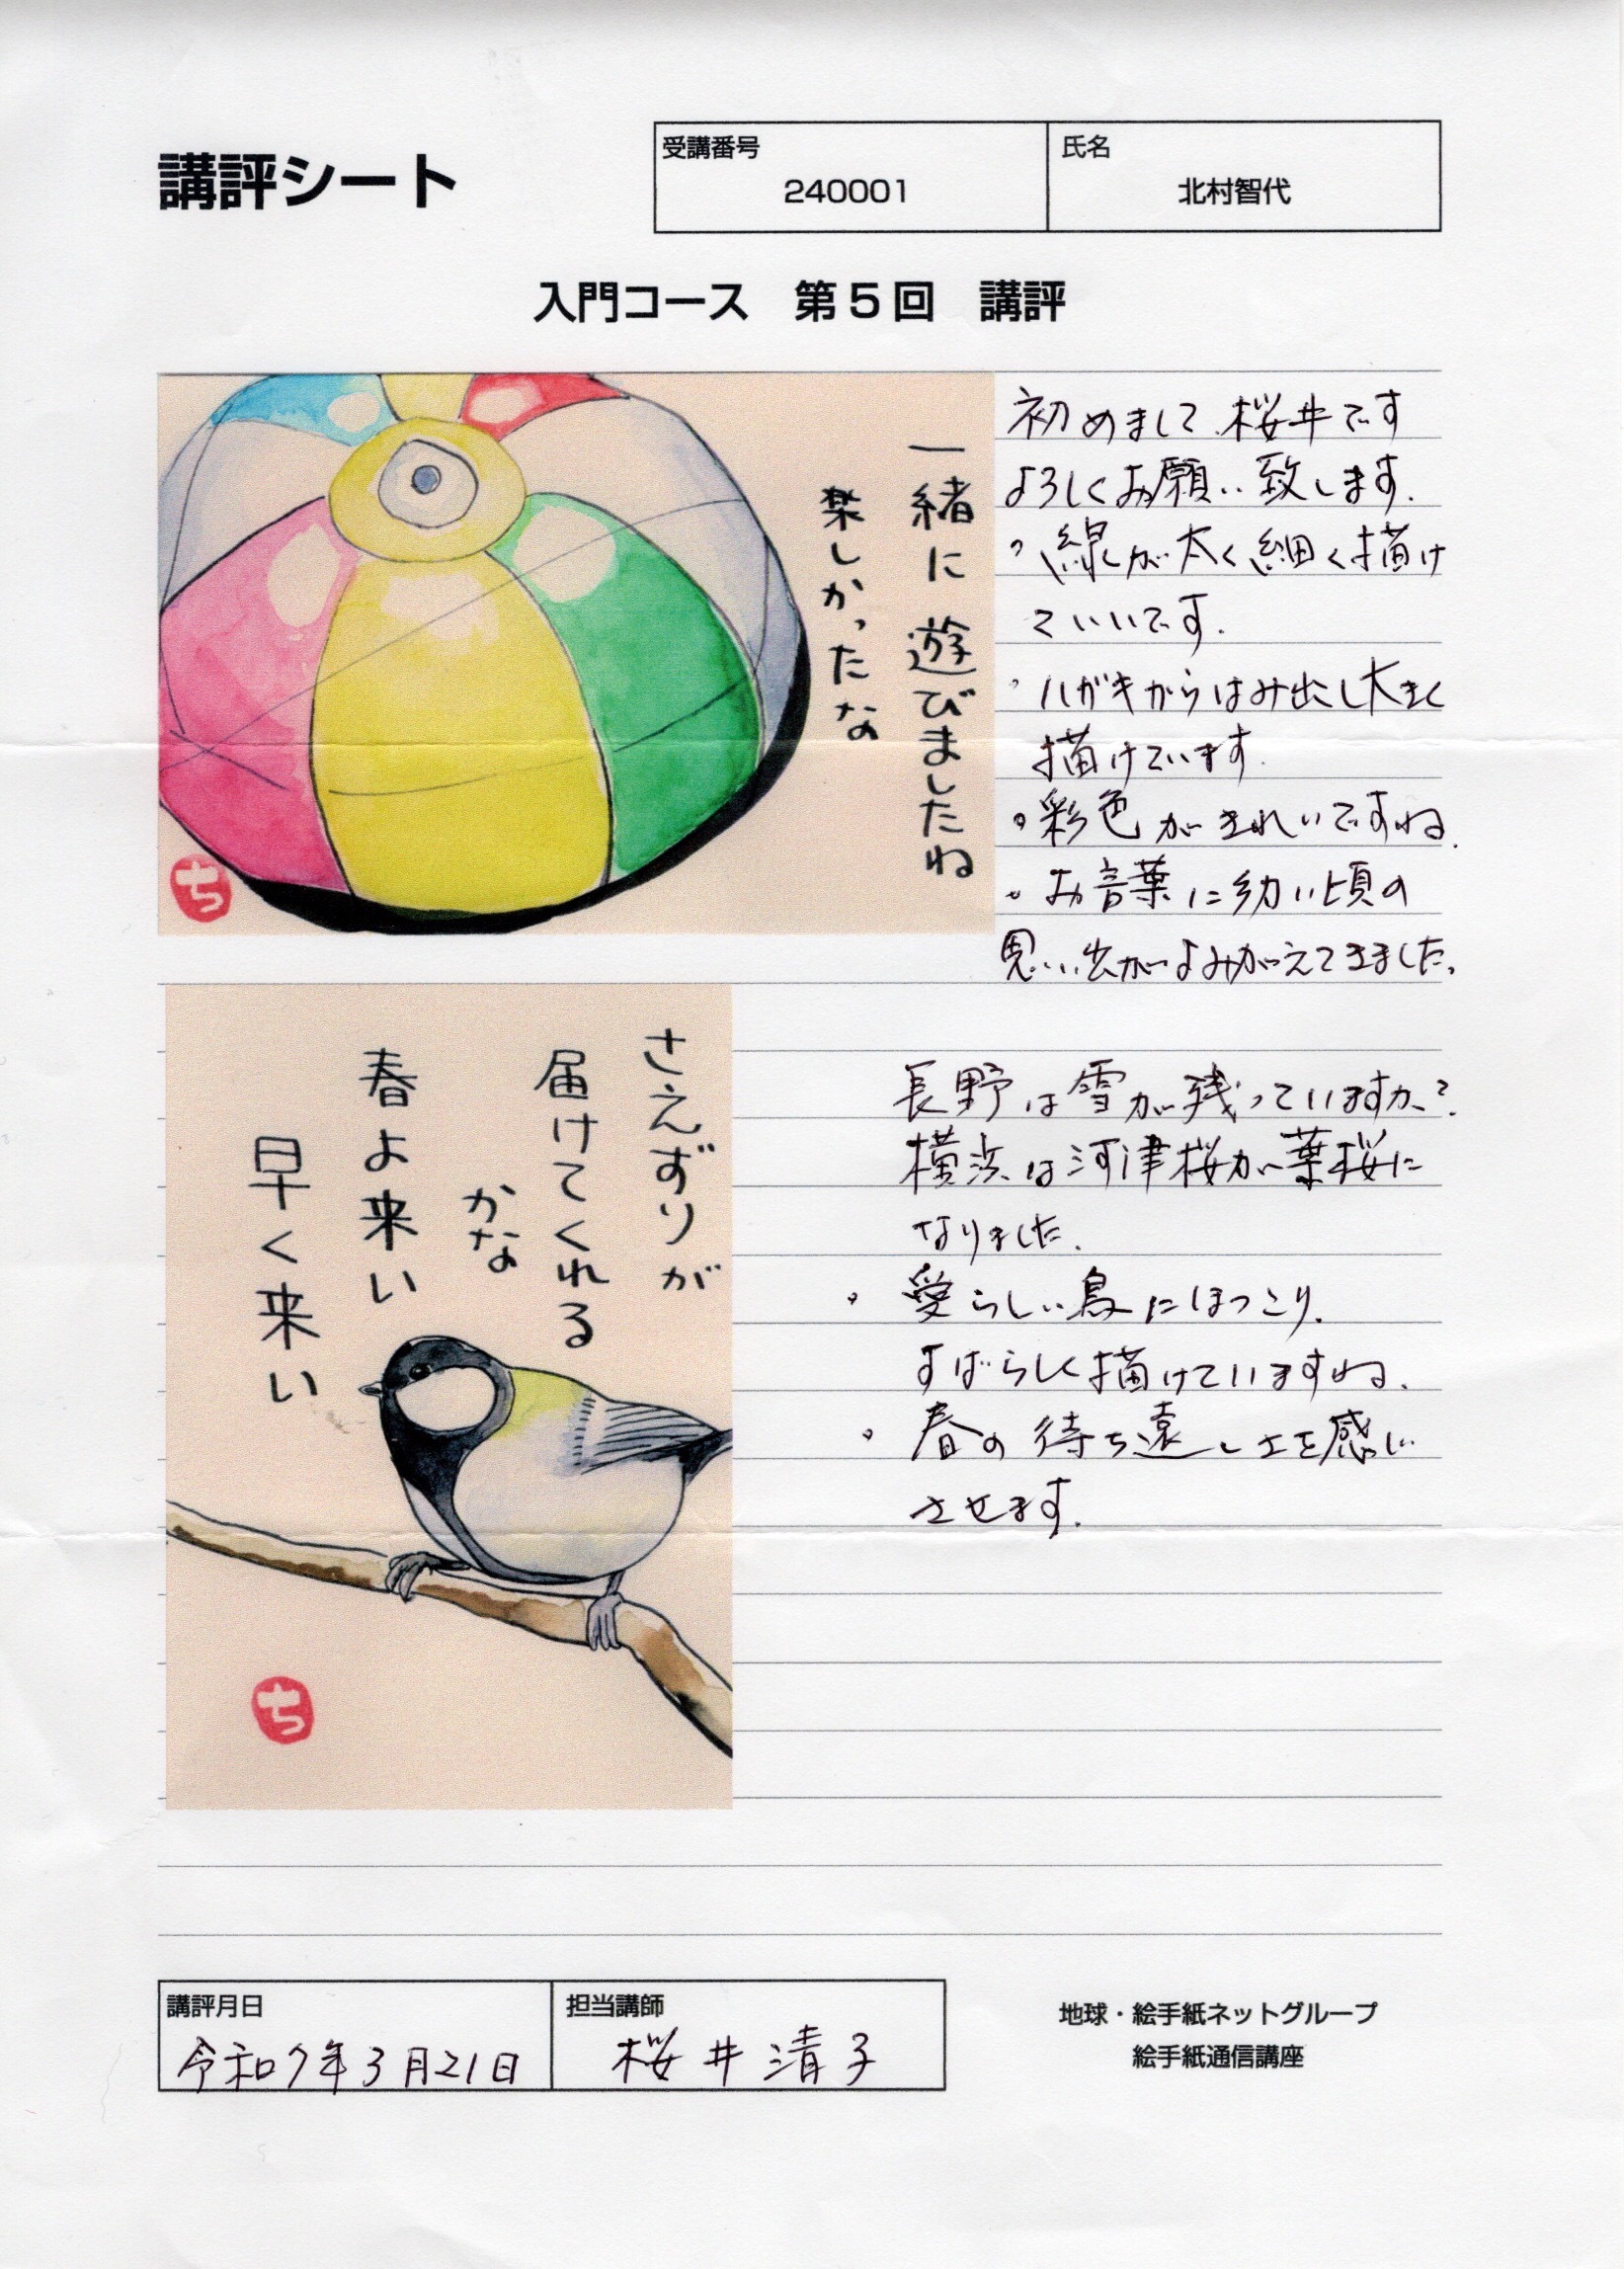 講評シート
受講番号
240001
氏名
北村智代
入門コース 第5回 講評
一緒に遊びましたね
楽しかったな
ち
初めまして 桜井です
よろしくお願い致します.
・線が太く細く描け
ていいです.
・ハガキからはみ出し大きく
描けています.
・彩色がきれいですね.
・お言葉に幼い頃の
思い出がよみがえてきました。
さえずりが
届けてくれる
かな
春よ来い
早く来い
ち
長野は雪が残っていますか?.
横浜は河津桜が葉桜に
なりました.
・愛らしい鳥にほっこり.
すばらしく描けていますね.
・春の待ち遠しさを感じ
させます.
講評月日
令和7年3月21日
担当講師
桜井清子
地球・絵手紙ネットグループ
絵手紙通信講座